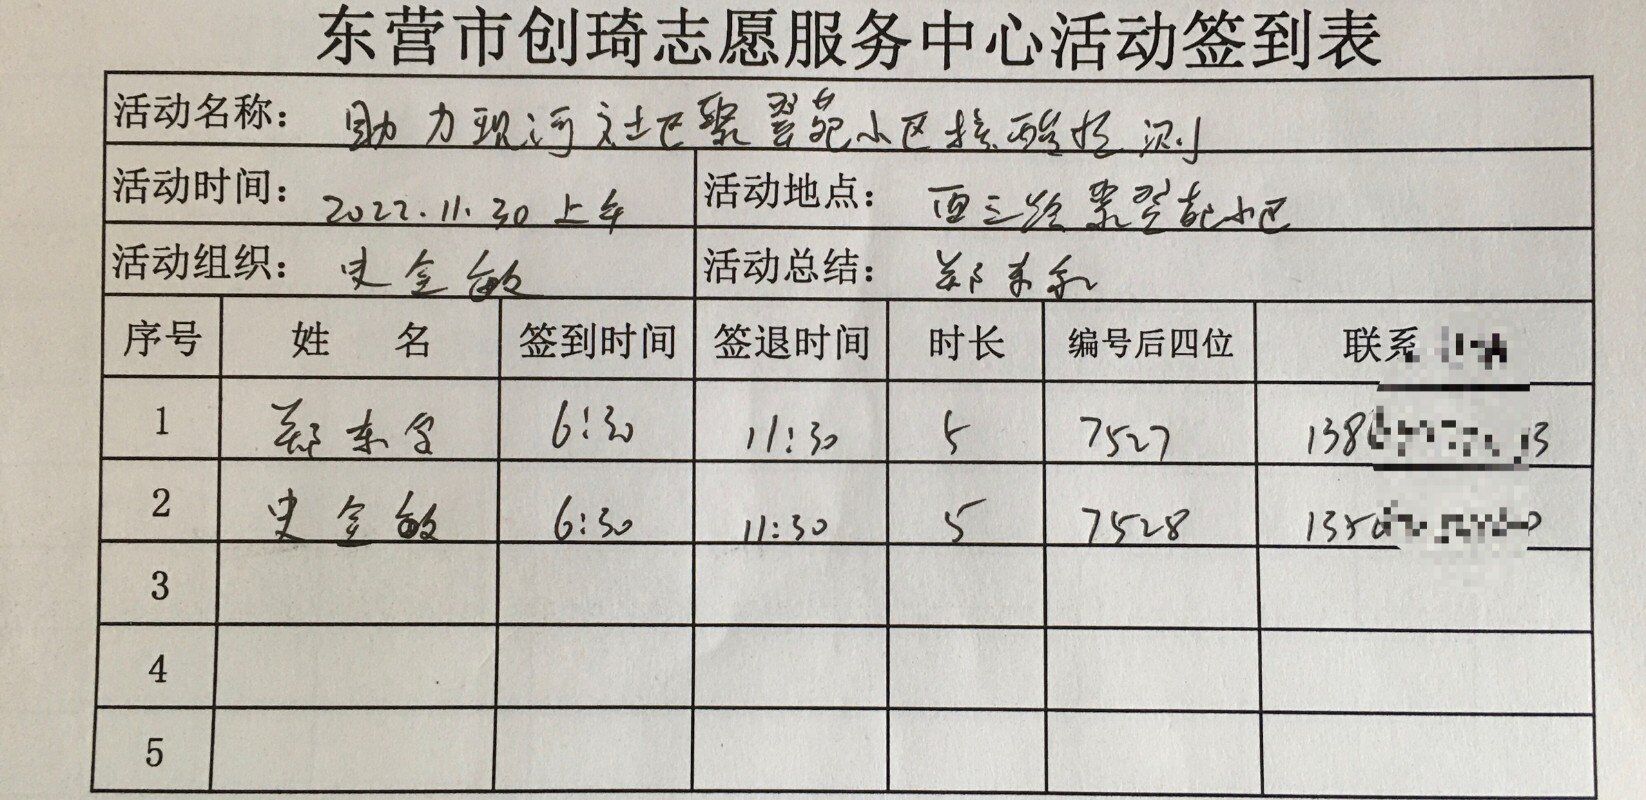 东营市创琦志愿服务中心活动签到表
活动名称: 助力现河社区聚翠苑小区核酸检测
活动时间: 2022.11.30上午 活动地点: 西三路聚翠苑小区
活动组织: 史金敏 活动总结: 郑东
序号 姓 名 签到时间 签退时间 时长 编号后四位 联系
1 郑东 6:30 11:30 5 7527 138
2 史金敏 6:30 11:30 5 7528 135
3
4
5